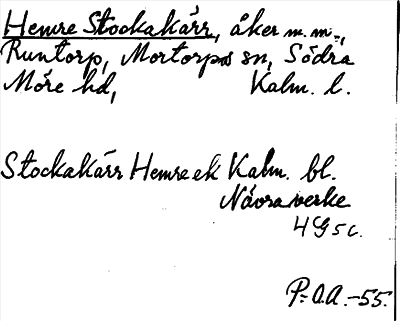 Hemre Stockakärr, åker m.m.,
Runtorp, Mortorps sn, Södra
Möre hd, Kalm. l.
Stockakärr Hemre ek Kalm. bl.
Påvra verke
4G5c.
P.O.A.-55.